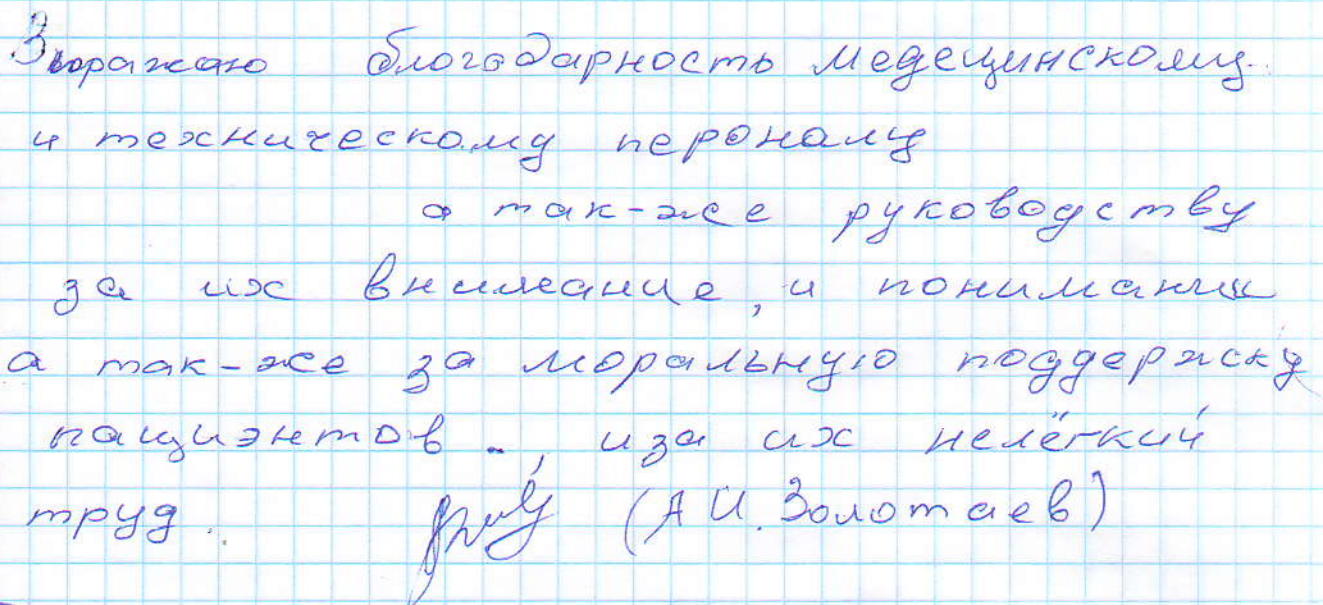 Выражаю благодарность медецинскому
и техническому пероналу
а так-же руководству
за их внимание, и понимании
а так-же за моральную поддержку
пациэнтов. иза их нелёгкий
труд. (А И. Золотаев)